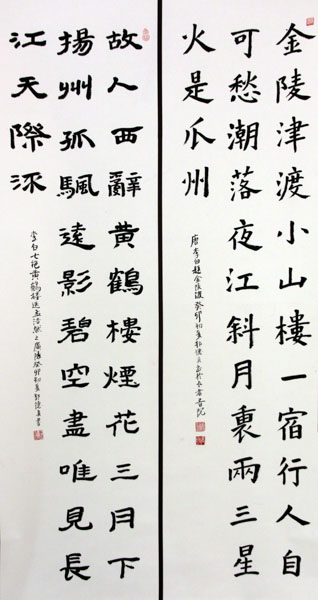 金陵津渡小山樓一宿行人自
可愁潮落夜江斜月裏兩三星
火是瓜州
唐李白題金陵渡癸卯初夏
故人西辭黃鶴樓煙花三月下
揚州孤颿遠影碧空盡唯見長
江天際流
李白七絕黃鶴樓送孟浩然之廣陵癸卯初夏